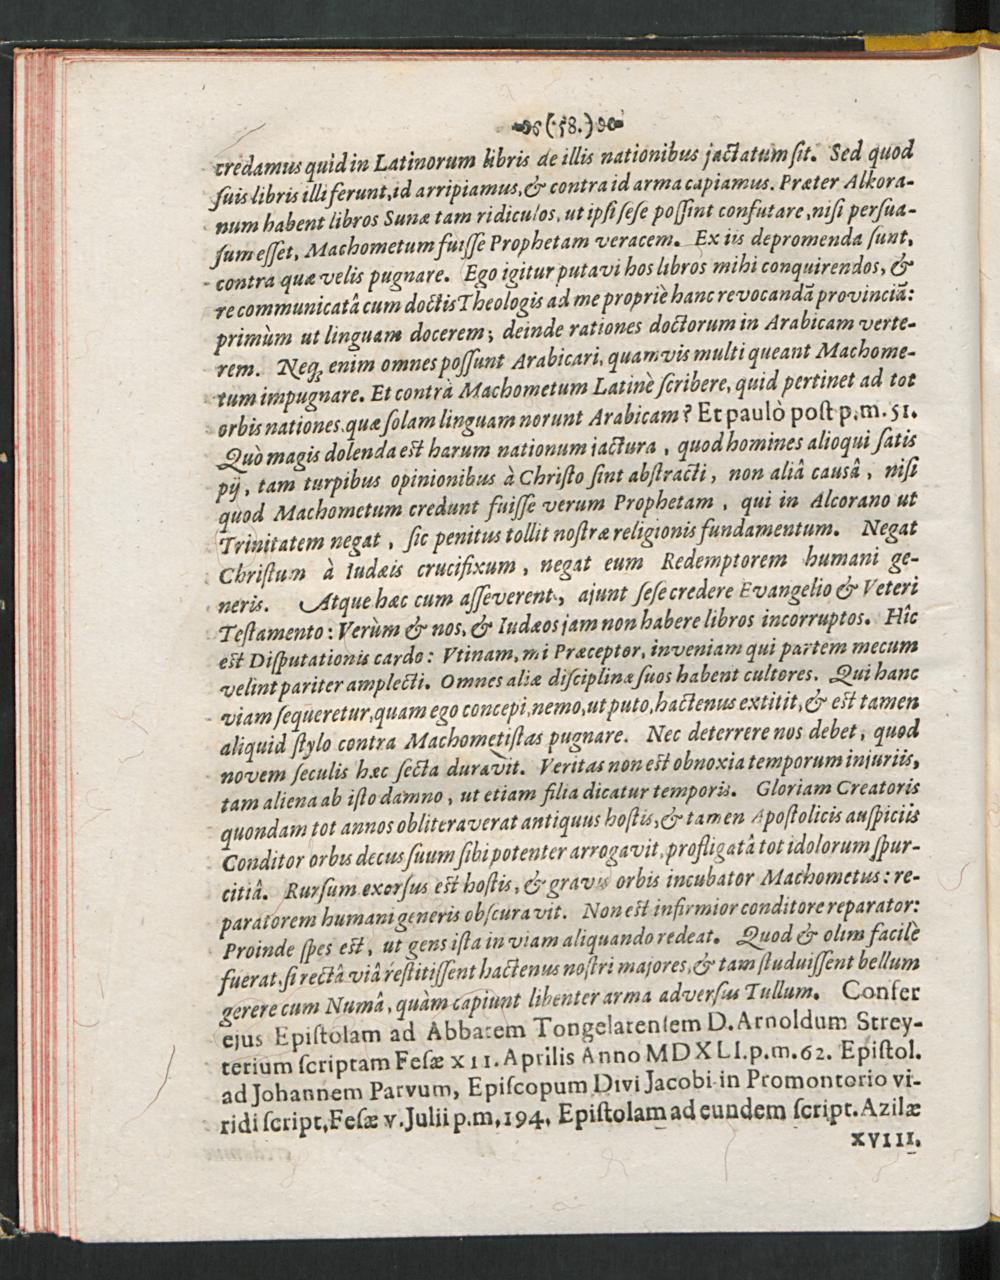 (58.)
credamus quid in Latinorum libris de illis nationibus jactatum sit. Sed quod
suis libris illi ferunt, id arripiamus, & contra id arma capiamus. Præter Alkora-
num habent libros Sunæ tam ridiculos, ut ipsi sese possint confutare, nisi persua-
sum esset, Machometum fuisse Prophetam veracem. Ex iis depromenda sunt,
contra quæ velis pugnare. Ego igitur putavi hos libros mihi conquirendos, &
re communicatâ cum doctis Theologis ad me propriè hanc revocandā provinciā:
primùm ut linguam docerem; deinde rationes doctorum in Arabicam verte-
rem. Neq; enim omnes possunt Arabicari, quamvis multi queant Machome-
tum impugnare. Et contrà Machometum Latinè scribere, quid pertinet ad tot
orbis nationes, quæ solam linguam norunt Arabicam? Et paulò post p.m. 51.
Quò magis dolenda est harum nationum jactura, quod homines alioqui satis
pij, tam turpibus opinionibus à Christo sint abstracti, non aliâ causâ, nisi
quod Machometum credunt fuisse verum Prophetam, qui in Alcorano ut
Trinitatem negat, sic penitus tollit nostræ religionis fundamentum. Negat
Christum à Iudæis crucifixum, negat eum Redemptorem humani ge-
neris. Atque hæc cum asseverent, ajunt sese credere Evangelio & Veteri
Testamento: Verùm & nos, & Iudæos jam non habere libros incorruptos. Hîc
est Disputationis cardo: Vtinam, mi Præceptor, inveniam qui partem mecum
velint pariter amplecti. Omnes aliæ disciplinæ suos habent cultores. Qui hanc
viam sequeretur, quam ego concepi, nemo, ut puto, hactenus extitit, & est tamen
aliquid stylo contra Machometistas pugnare. Nec deterrere nos debet, quod
novem seculis hæc secta duravit. Veritas non est obnoxia temporum injuriis,
tam aliena ab isto damno, ut etiam filia dicatur temporis. Gloriam Creatoris
quondam tot annos obliteraverat antiquus hostis, & tamen Apostolicis auspiciis
Conditor orbis decus suum sibi potenter arrogavit, profligatâ tot idolorum spur-
citiâ. Rursum exorsus est hostis, & gravis orbis incubator Machometus: re-
paratorem humani generis obscuravit. Non est infirmior conditore reparator:
Proinde spes est, ut gens ista in viam aliquando redeat. Quod & olim facilè
fuerat, si rectâ viâ restitissent hactenus nostri majores, & tam studuissent bellum
gerere cum Numâ, quàm capiunt libenter arma adversus Tullum. Confer
ejus Epistolam ad Abbatem Tongelatensem D. Arnoldum Strey-
terium scriptam Fesæ XII. Aprilis Anno MDXLI. p.m. 62. Epistol.
ad Johannem Parvum, Episcopum Divi Jacobi in Promontorio vi-
ridi script. Fesæ v. Julii p.m. 194. Epistolam ad eundem script. Azilæ
XVIII.